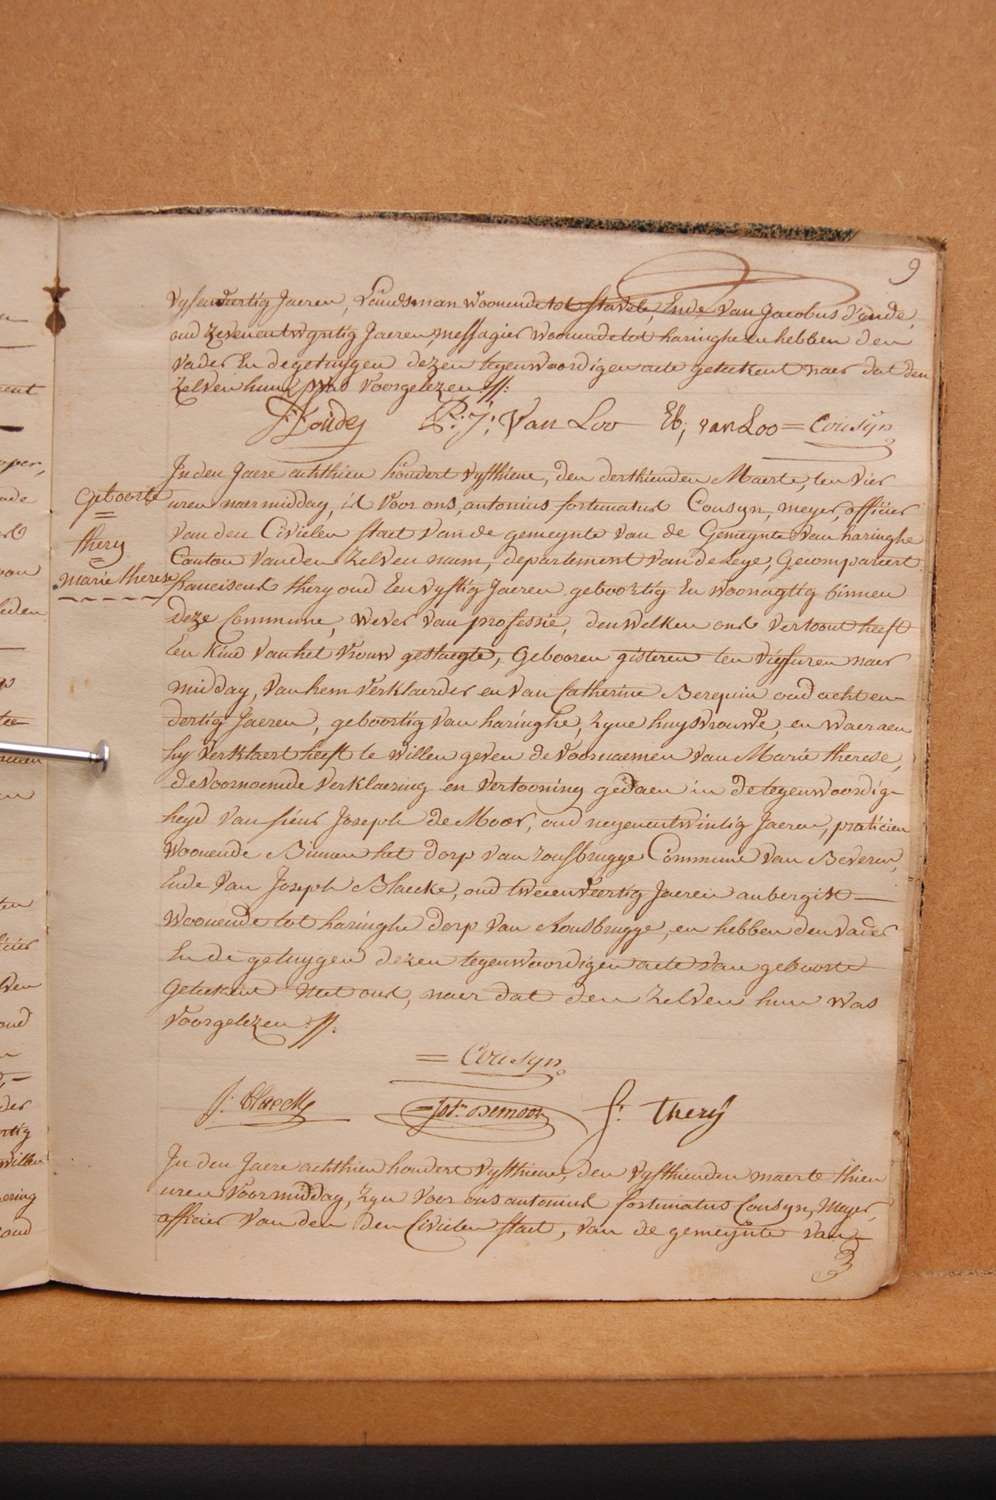 9
vyfenveertig Jaeren, Landsman woonende tot Stavele, Ende van Jacobus D'oude,
oud zevenentwyntig Jaeren, messagier woonende tot haringhe en hebben den
vader En de getuygen dezen tegenwoordigen acte geteekent naer dat den
zelven hun was voorgelezen //:
P: J: Van Loo Eb; van Loo = Cousyn
In den Jaere achthien hondert vyfthiene, den derthienden Maerte, ten vier
uren naer middag, is voor ons, antonius fortunatus Cousyn, meyer, officier
van den Civielen staet van de gemeynte van de Gemeynte van haringhe
Canton van den zelven naem, departement van de Leye, Gecompareert
franciscus thery oud Een vyftig Jaeren, geboortig En woonagtig binnen
deze Commune, wever van professie, den welken ons vertoont heeft
Een Kind van het vrouw geslaegte, Gebooren gisteren ten vyf uren naer
middag, van hem verklaerder en van Catherine Berquin oud acht en
dertig Jaeren, geboortig van haringhe, zyne huysvrouwe, en waeraen
hy verklaert heeft te willen geven de voornaemen van Marie therese,
de voornoemde verklaering en vertooning gedaen in de tegenwoordig-
heyd van sieur Joseph de Moor, oud negenentwintig Jaeren, praticien
woonende Binnen het dorp van rousbrugge Commune van Beveren,
Ende van Joseph Blaecke, oud tweenveertig Jaeren aubergist
woonende tot haringhe dorp van Rousbrugge, en hebben den vader
En de getuygen dezen tegenwoordigen acte van geboorte
geteekent Met ons, naer dat den zelven hun was
voorgelezen //:
geboorte
=
thery
=
marie therese
= Cousyn
J: Blaecke = Jos: Demoor F: thery
In den Jaere achthien hondert vyfthiene, den vyfthienden maerte thien
uren voormiddag, zyn voor ons antonius fortunatus Cousyn, Meyer,
officier van den den Civielen staet, van de gemeynte van